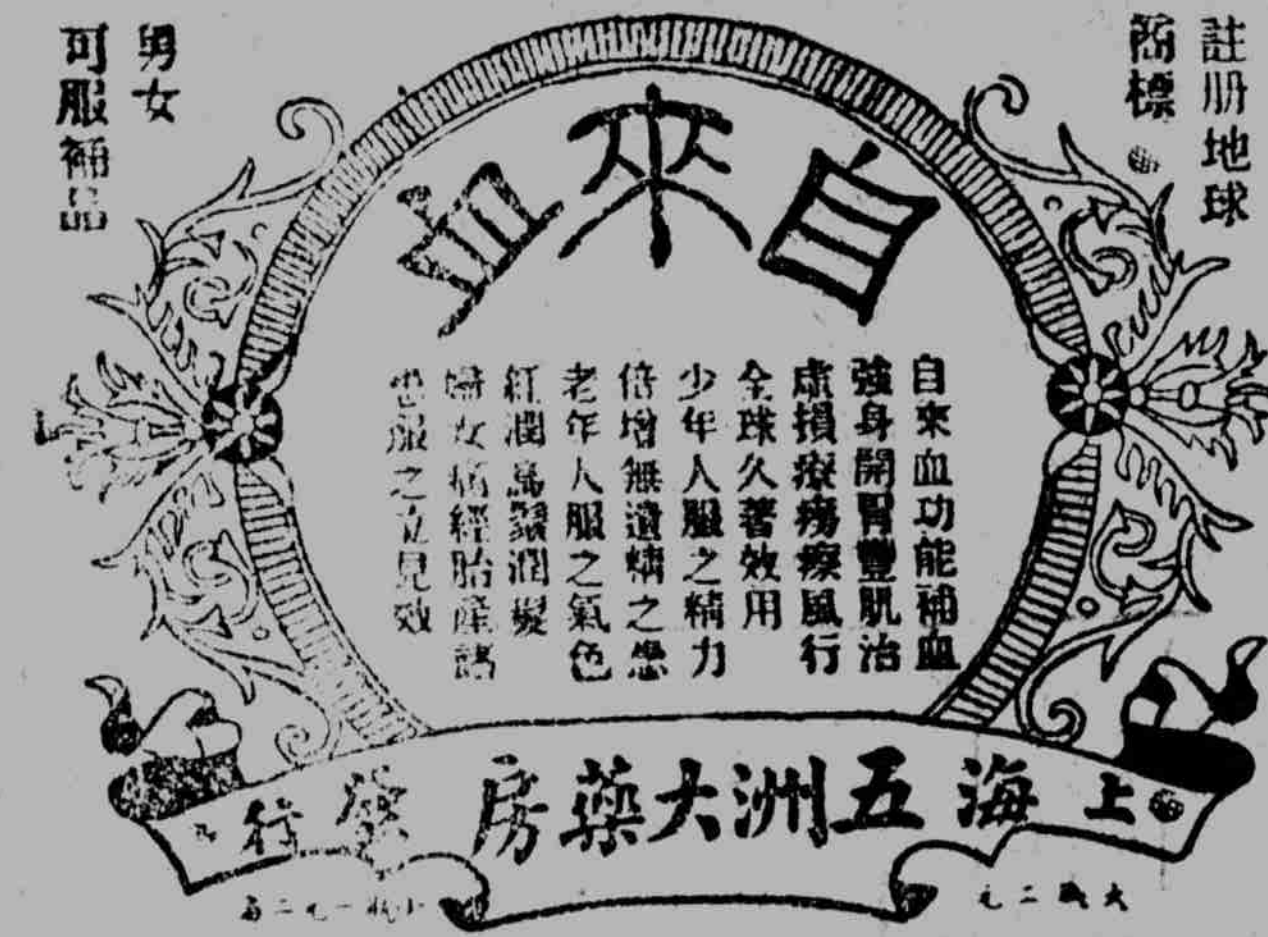 註册地球
商標
自來血
男女
可服補品
自來血功能補血
強身開胃豐肌治
虛損療癆瘵風行
全球久著效用
少年人服之精力
倍增無遺精之患
老年人服之氣色
紅潤烏鬚潤髮
婦女痛經胎產諸
患服之立見效
上海五洲大藥房發行
大瓶二元
小瓶一元二角